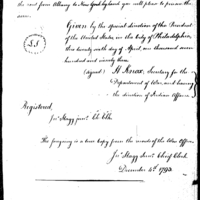 the road from Albany to New York by land you will please to pursue the
same.
Given by the special direction of the President
of the United States, in the City of Philadelphia,
this twenty sixth day of April, one thousand seven
hundred and ninety three
S.S
(signed) H Knox, Secretary for the
Department of War, and having
the direction of Indian Affairs
Registered,
Jno Stagg junr. Cl. Clk.
The foregoing is a true Copy from the records of the War Office.
Jno Stagg Junr. Chief Clerk
December 4th 1793